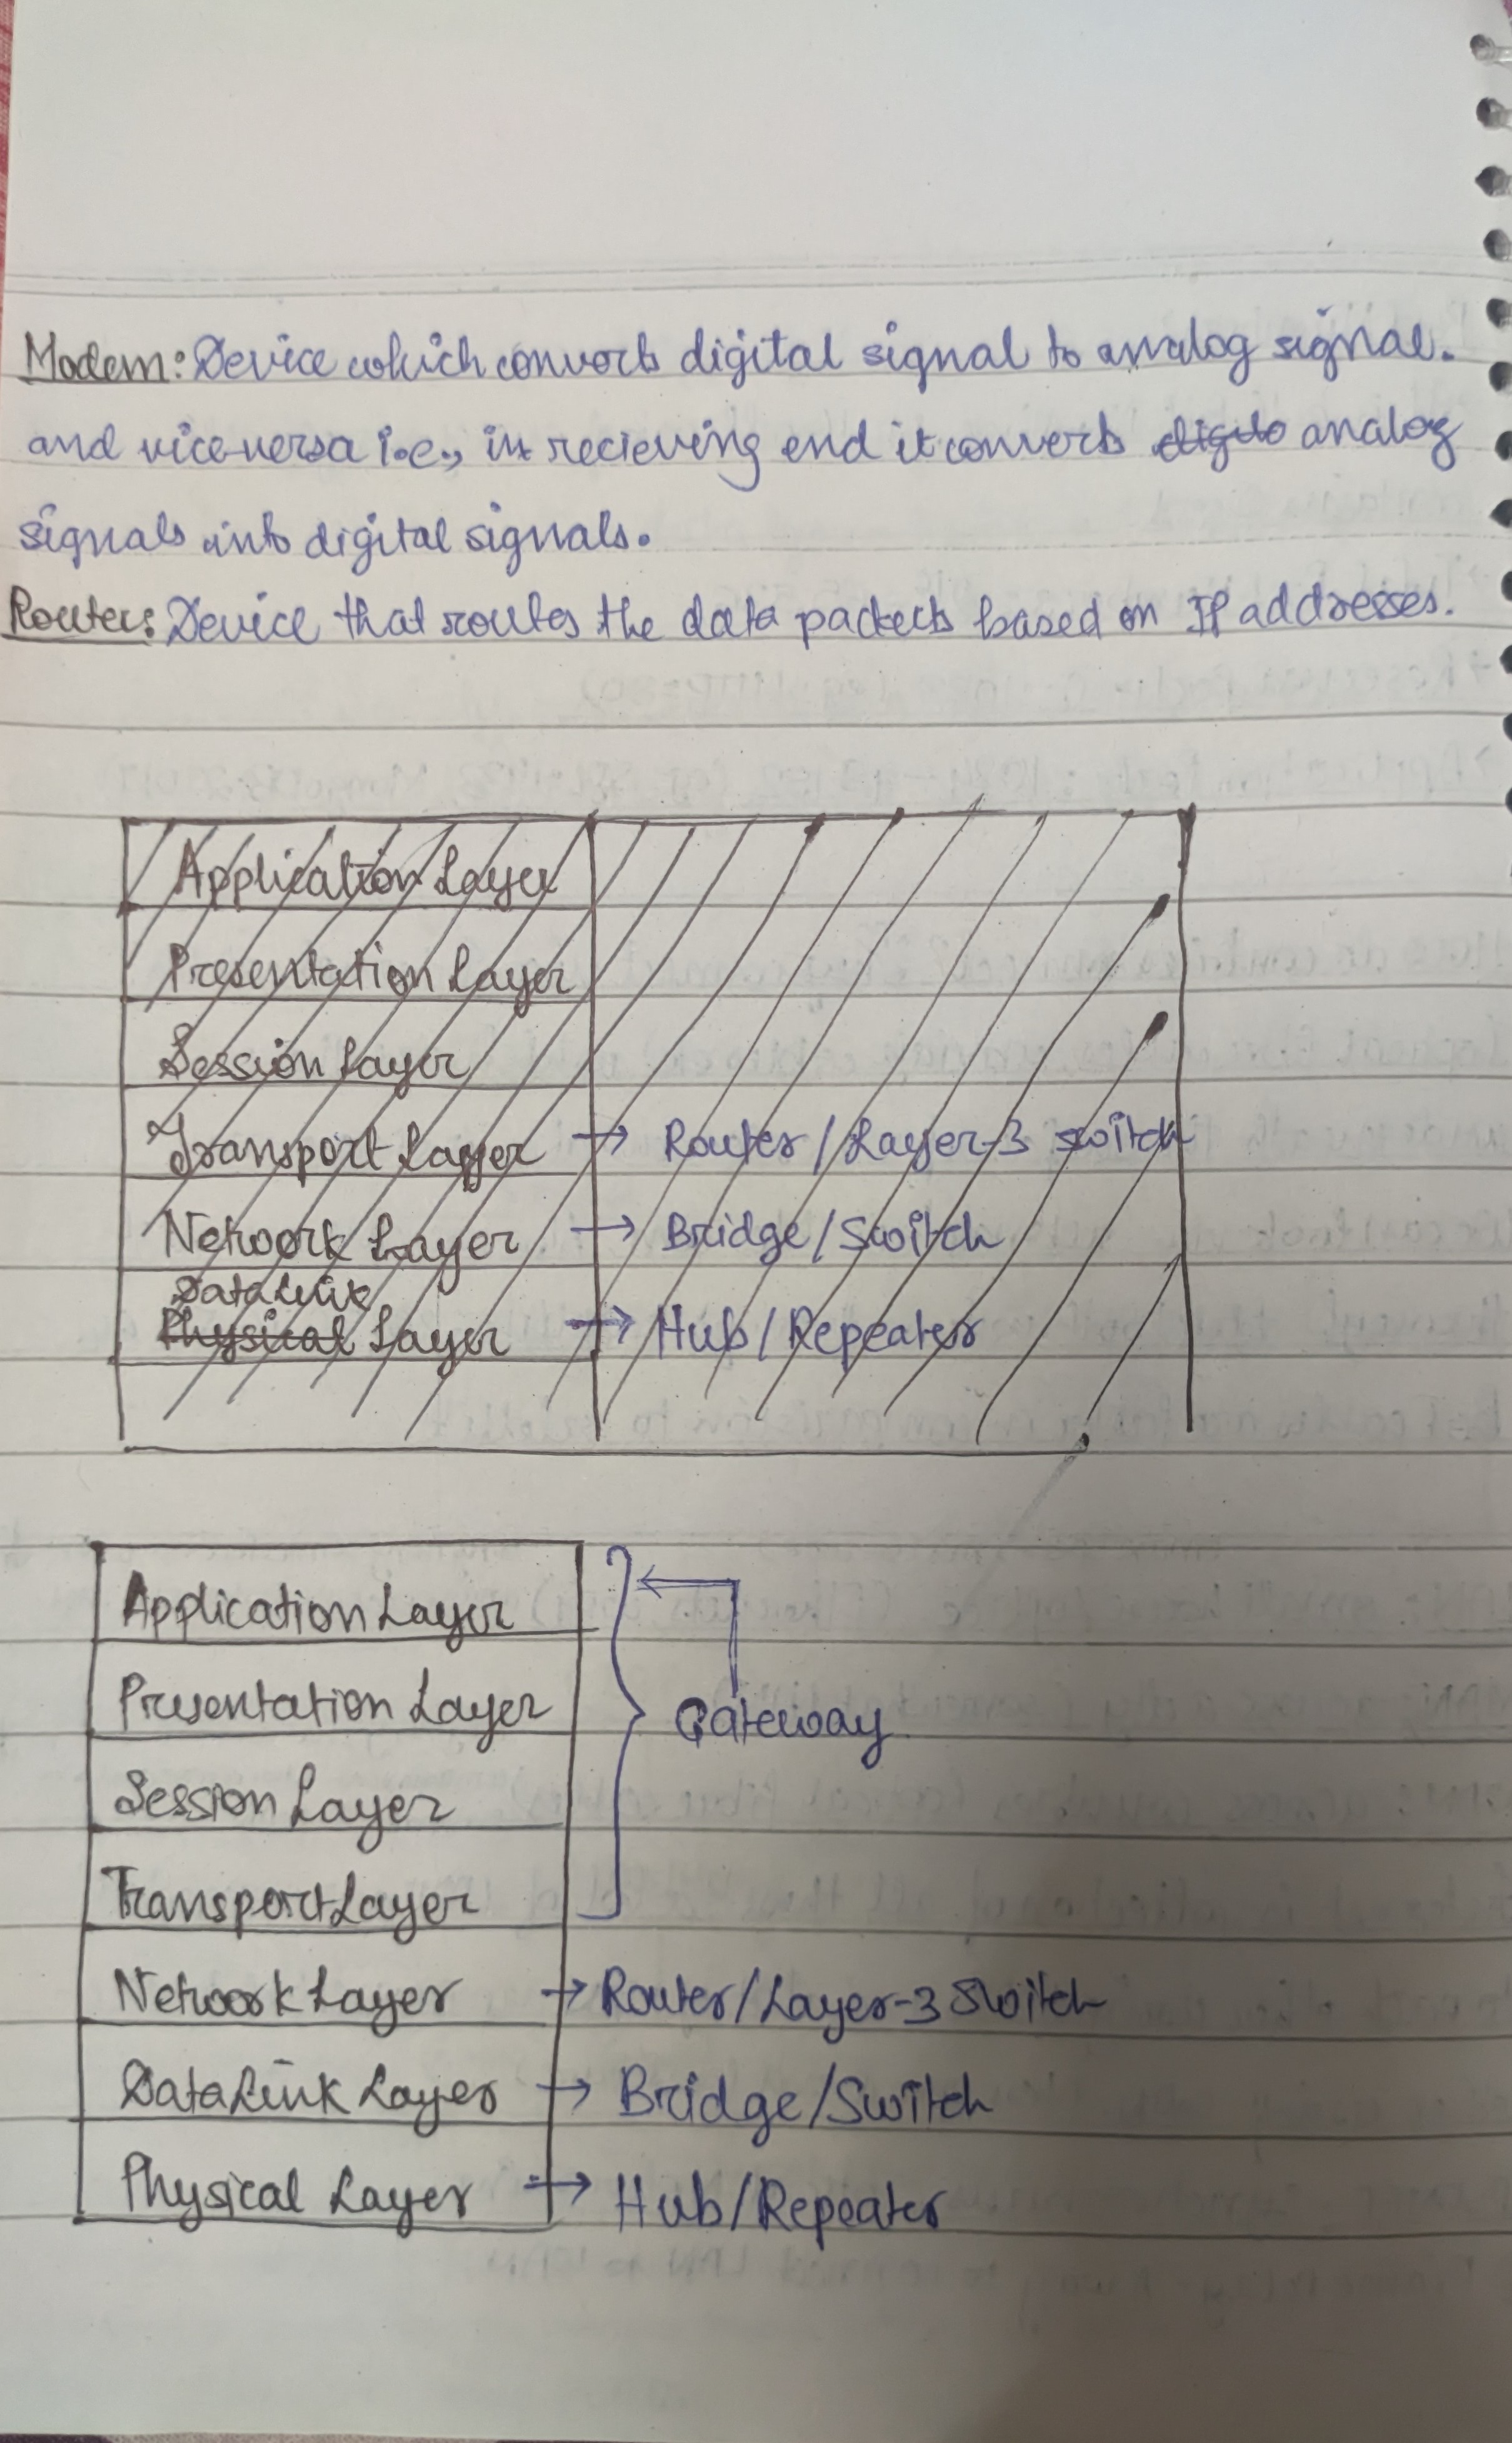 Modem: Device which converts digital signal to analog signal.
and vice-versa i.e., in recieving end it converts digita analog
signals into digital signals.
Router: Device that routes the data packets based on IP addresses.
Application Layer
Presentation Layer
Session Layer
Transport Layer → Router/Layer-3 switch
Network Layer → Bridge/Switch
Data Link
Physical Layer → Hub/Repeater
Application Layer
Presentation Layer Gateway
Session Layer
Transport Layer
Network Layer → Router/Layer-3 Switch
Data Link Layer → Bridge/Switch
Physical Layer → Hub/Repeater